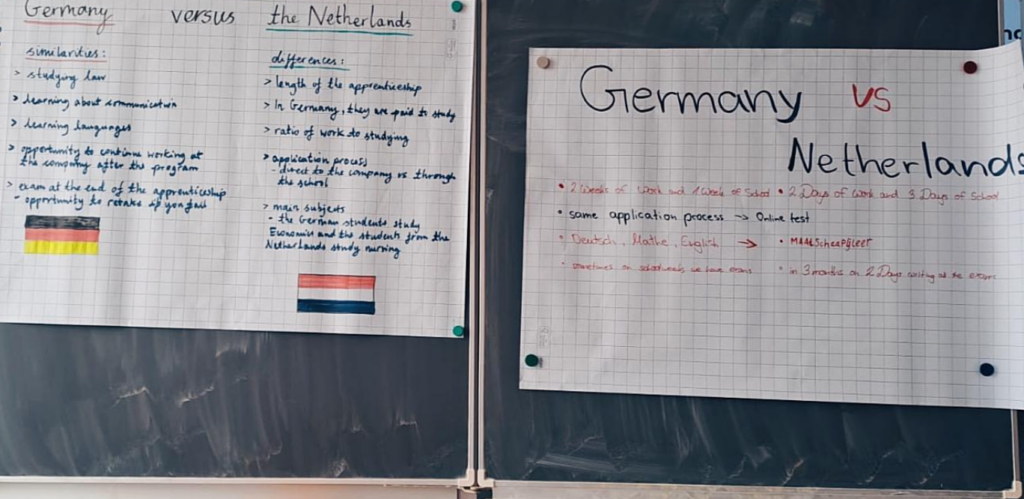 Germany versus the Netherlands
similarities:
> studying law
> learning about communication
> learning languages
> opportunity to continue working at
the company after the program
> exam at the end of the apprenticeship
- opportunity to retake if you fail
differences:
> length of the apprenticeship
> In Germany, they are paid to study
> ratio of work to studying
> application process
- direct to the company vs through
the school
> main subjects
- the German students study
Economics and the students from the
Netherlands study nursing
Germany vs
Netherlands
• 2 Weeks of Work and 1 Week of School • 2 Days of Work and 3 Days of School
• same application process → Online test
• Deutsch, Mathe, English → •
• sometimes on schoolweeks we have exams • in 3 months on 2 Days at the exams